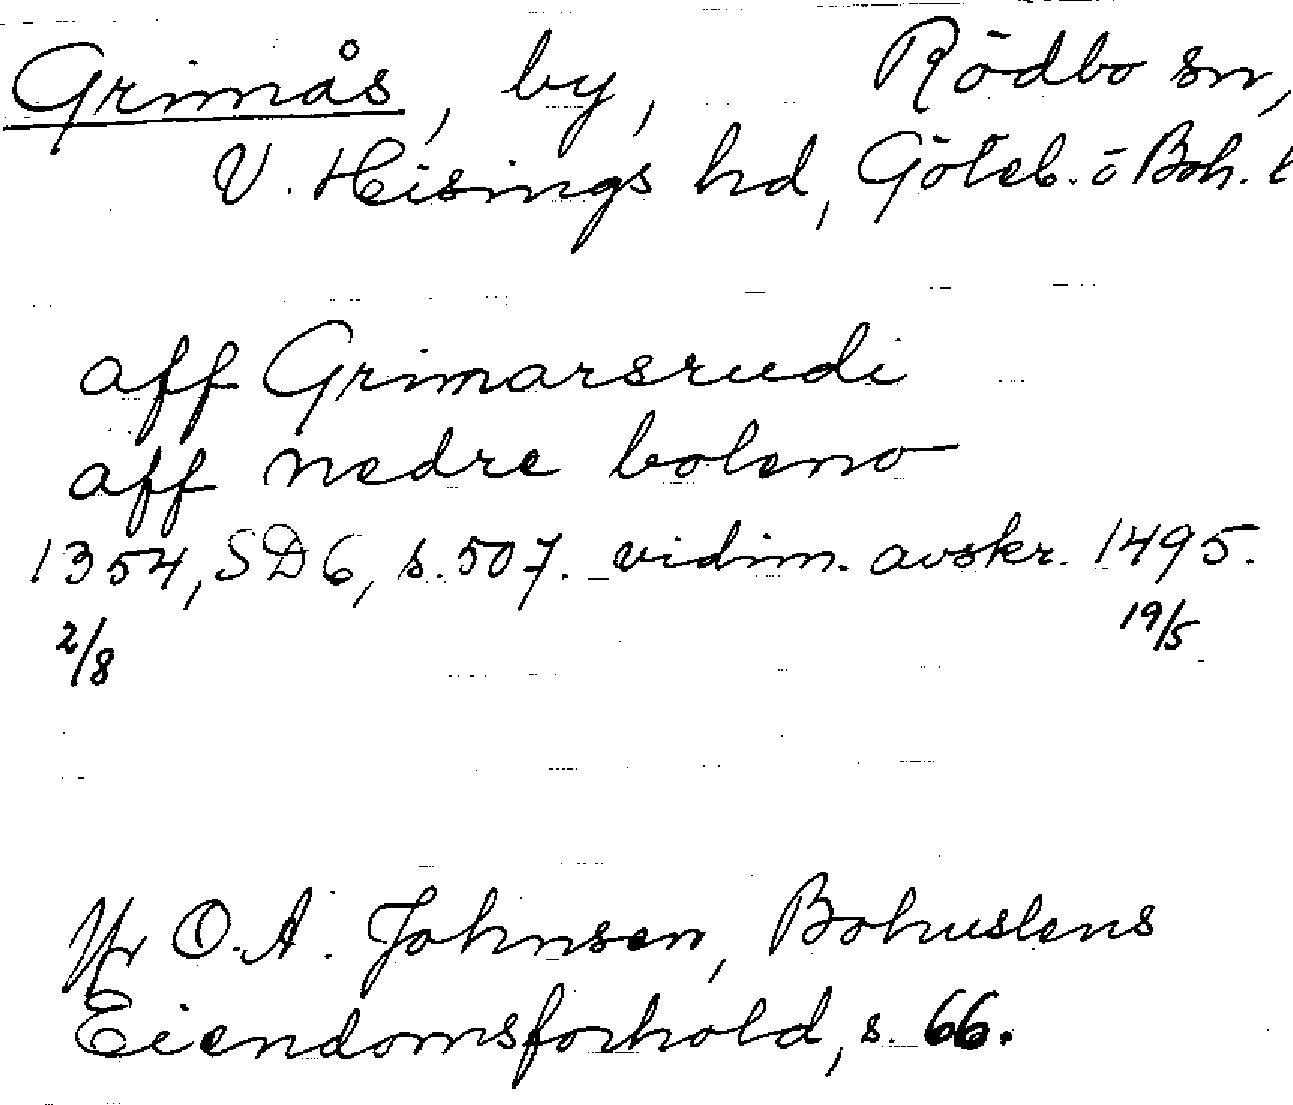 Grimås, by, Rödbo sn,
V. Hisings hd, Göteb. o Boh. l
aff Grimarsrudi
aff nedre boleno
1354, SD 6, s. 507. vidim. avskr. 1495.
2/8 19/5
Jfr O. A. Johnsen, Bohuslens
Eiendomsforhold, s. 66.